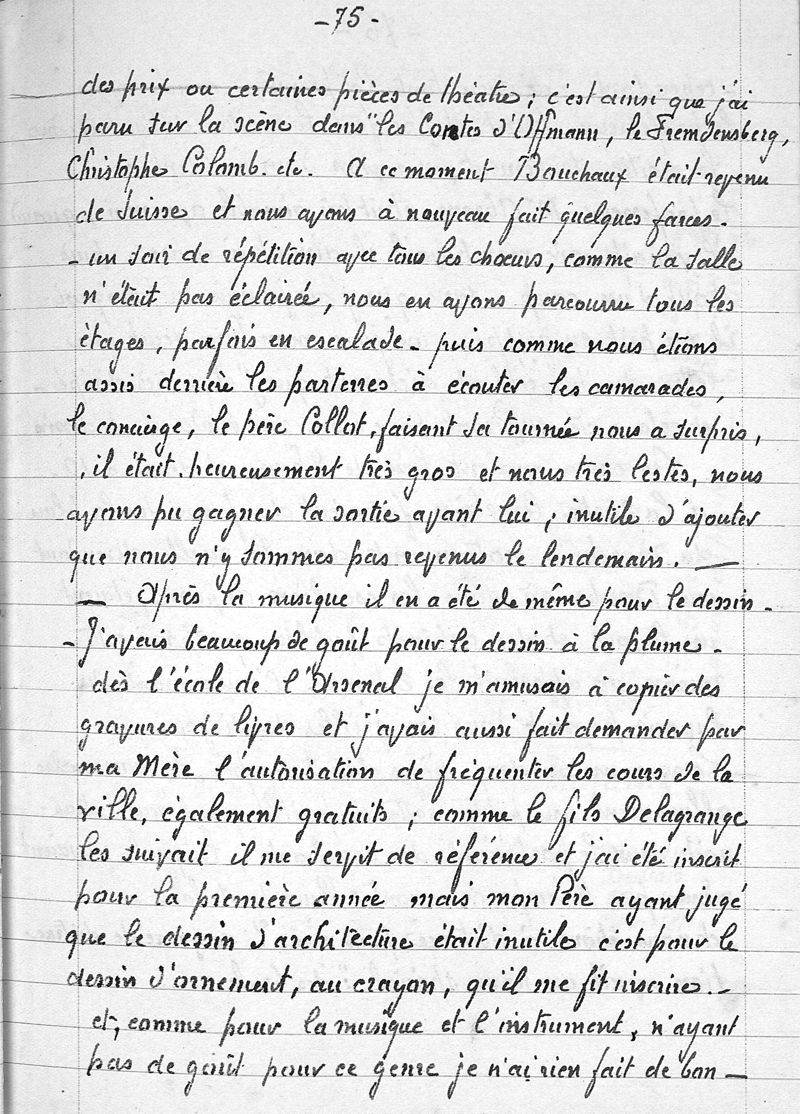 - 75 -
des prix ou certaines pièces de théatre ; c'est ainsi que j'ai
paru sur la scène dans "les Contes d'Offmann, le Fremdensberg,
Christophe Colomb. etc. A ce moment Bouchaux était revenu
de Suisse et nous avons à nouveau fait quelques farces.
- un soir de répétition avec tous les choeurs, comme la salle
n'était pas éclairée, nous en avons parcouru tous les
étages, parfois en escalade - puis comme nous étions
assis derrière les parterres à écouter les camarades,
le concierge, le père Collot, faisant sa tournée nous a surpris,
, il était heureusement très gros et nous très lestes, nous
avons pu gagner la sortie avant lui ; inutile d'ajouter
que nous n'y sommes pas revenus le lendemain. —
— Après la musique il en a été de même pour le dessin -
- J'avais beaucoup de goût pour le dessin à la plume -
dès l'école de l'Arsenal je m'amusais à copier des
gravures de livres et j'avais aussi fait demander par
ma Mère l'autorisation de fréquenter les cours de la
ville, également gratuits ; comme le fils Delagrange
les suivait il me servit de référence et j'ai été inscrit
pour la première année mais mon Père ayant jugé
que le dessin d'architecture était inutile c'est pour le
dessin d'ornement, au crayon, qu'il me fit inscrire. -
et, comme pour la musique et l'instrument, n'ayant
pas de goût pour ce genre je n'ai rien fait de bon —